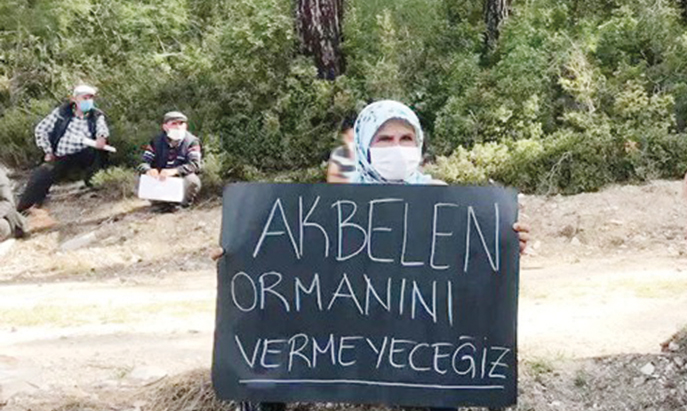 AKBELEN
ORMANINI
VERMEYECEĞİZ